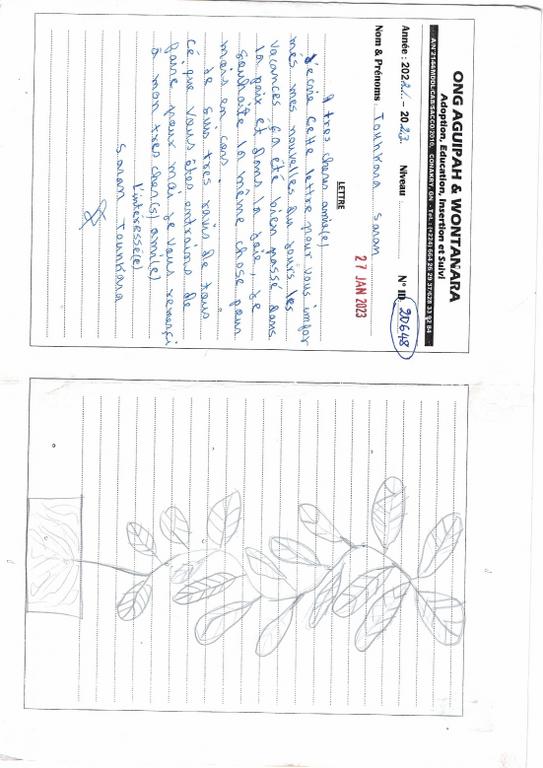 ONG AGUIPAH & WONTANARA
Adoption, Education, Insertion et Suivi
CONAKRY, GN - Tel : (+224) 664 26 29 37/628 33 92 84
Année : 2022 - 2023 Niveau N° ID 20648
Nom & Prénoms Tounkara Saran
27 JAN 2023
LETTRE
tres chers amie(e)
J'ecrie cette lettre pour vous infor
mes mes nouvelles du Jours les
vacances ça été bien passé dans
la paix et dans la Joie, Je
Souhaite la même chose pour
mais en cas
Je suis très ravis de tous
ce que vous êtes entrains de
faire pour mai Je vous remerçi
à mon tres cher(s) ami(e)
L'interesse(e)
Saran Tounkara